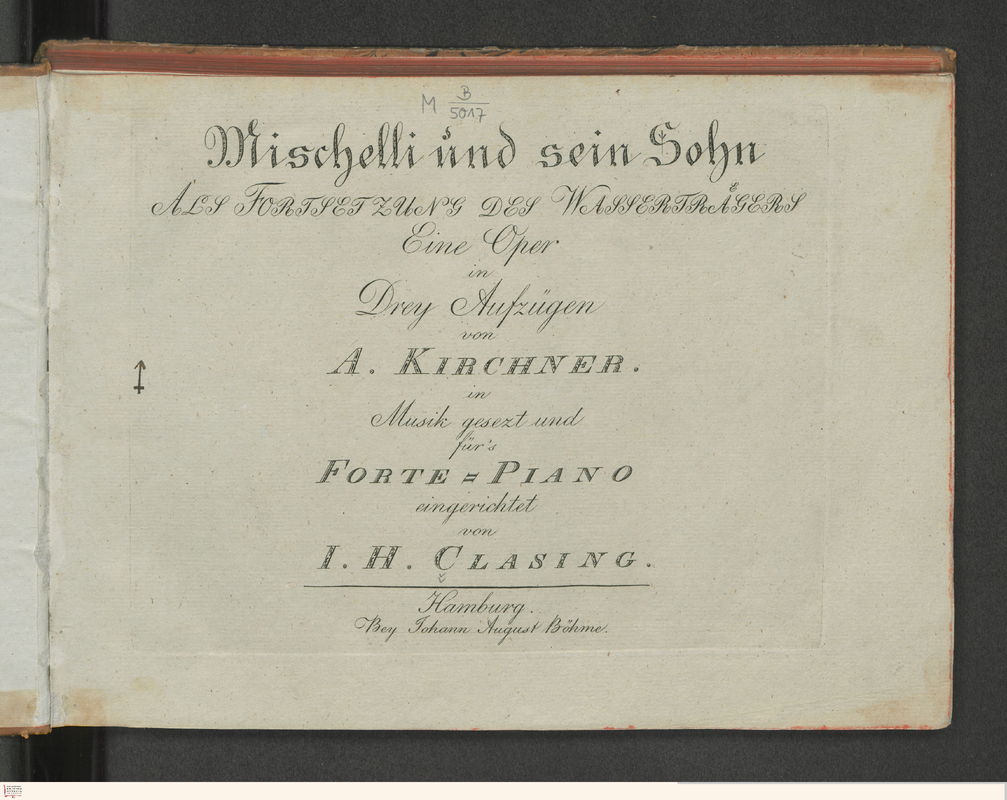 M B/5017
Mischelli und sein Sohn
ALS FORTSETZUNG DES WASSERTRÄGERS
Eine Oper
in
Drey Aufzügen
von
A. KIRCHNER.
in
Musik gesezt und
für's
FORTE = PIANO
eingerichtet
von
I. H. CLASING.
Hamburg.
Bey Johann August Böhme.